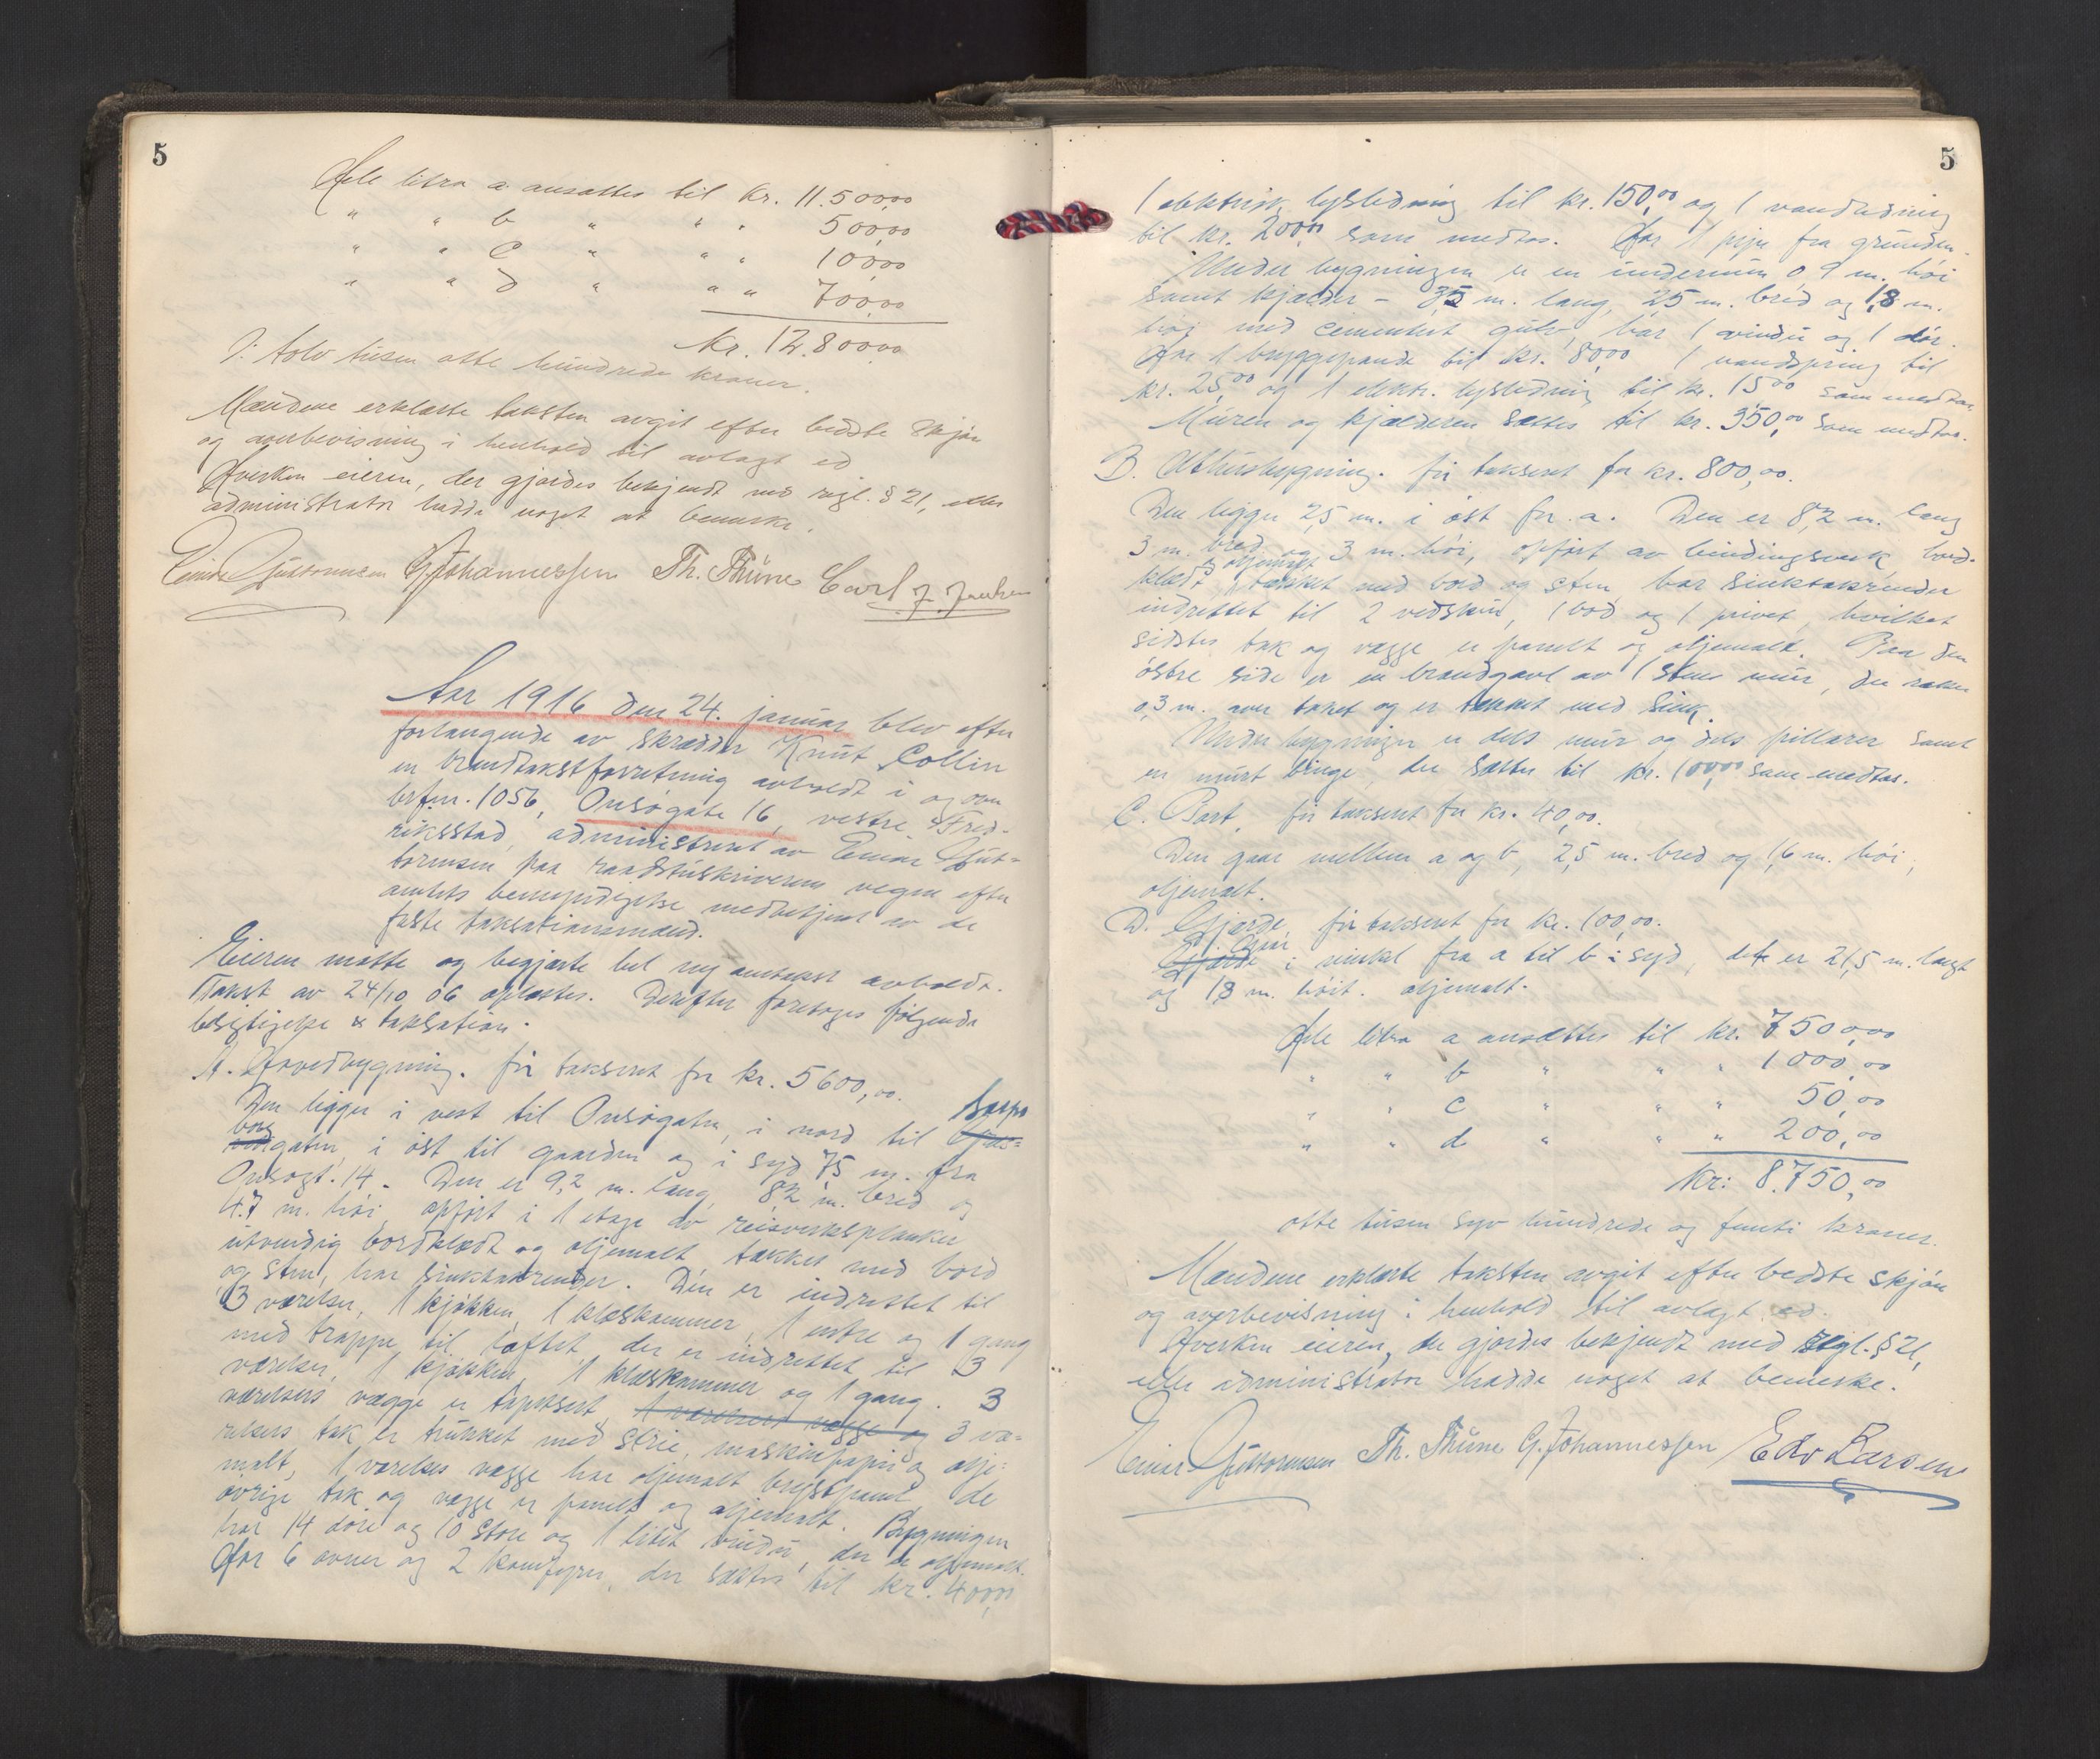 5
Hele litra a ansættes til kr. 11.500,00
" " b " " " 500,00
" " c " " " 100,00
" " d " " " 700,00
kr. 12.800,00
D: tolv tusen otte hundrede kroner.
Mændene erklærte taksten avgit efter bedste skjøn
og overbevisning i henhold til avlagt ed
Hverken eieren, der gjordes bekjendt med regl. § 21, eller
administrator hadde noget at bemerke.
Einar Guttormsen G. Johannessen Th. Thüne Carl J. Jensen
Aar 1916 den 24. januar blev efter
forlangende av skrædder Knut Collin
en brandtakstforretning avholdt i og over
brf.nr. 1056, Onsøgate 16, vestre Fred-
riksstad, administreret av Einar Gut-
tormsen paa raadstuskriverens vegne efter
amtets bemyndigelse medbetjent av de
faste taksationsmænd.
Eieren møtte og begjærte hel ny omtakst avholdt.
Takst av 24/10 06 oplæstes. Derefter foretoges følgende
besigtigelse & taksation.
A. Hovedbygning. før takseret for kr. 5600,00.
Den ligger i vest til Onsøgaten, i nord til Sarps
borg
gaten, i øst til gaarden og i syd 7,5 m. fra
Onsøgt. 14. Den er 9,2 m. lang, 8,2 m. bred og
4,7 m. høi, opført i 1 etage av reisverksplanker
utvendig bordklædt og oljemalt tækket med bord
og sten, har sinktakrender. Den er indrettet til
3 værelser, 1 kjøkken, 1 klæskammer, 1 entre og 1 gang
med trappe til loftet der er indrettet til 3
værelser, 1 kjøkken, 1 klæskammer og 1 gang. 3
værelsers vægge er tapetsert 1 værelsers vægge og 3 væ-
relsers tak er trukket med strie, maskinpapir og olje-
malt, 1 værelses vægge har oljemalt brystpanel de
øvrige tak og vægge er panelt og oljemalt. Bygningen
har 14 døre og 10 store og 1 litet vindu, der er oljemalt.
Har 6 ovner og 2 komfyrer, der sættes til kr. 400,00
5
1 elektrisk lysledning til kr. 150,00 og 1 vandledning
til kr. 200,00 som medtas. Har 1 pipe fra grunden.
Under bygningen er en undermur 0,9 m. høi
samt kjælder - 3,5 m. lang, 2,5 m. bred og 1,8 m.
høi med cementert gulv, har 1 vindu og 1 dør.
Har 1 bryggepande til kr. 80,00 1 vandspring til
kr. 25,00 og 1 elektr. lysledning til kr. 15,00 som medtas.
Muren og kjælderen sættes til kr. 350,00 som medtas.
B. Uthusbygning. før takseret for kr. 800,00.
Den ligger 2,5 m. i øst for a. Den er 8,2 m. lang
3 m. bred og 3 m. høi, opført av bindingsverk, bord-
& oljemalt
klædt, tækket med bord og sten, har sinktakrender
indrettet til 2 vedskur, 1 bod og 1 privet, hvilket
sidstes tak og vægge er panelt og oljemalt. Paa den
østre side er en brandgavl av 1 stens mur, der rækker
0,3 m. over taket og er tækket med sink.
Under bygningen er dels mur og dels pillarer samt
en murt binge, der sættes til kr. 100,00 som medtas.
C. Port, før takseret for kr. 40,00.
Den gaar mellem a og b, 2,5 m. bred og 1,6 m. høi,
oljemalt.
D. Gjærde, før takseret for kr. 100,00.
Gjærde i vinkel fra a til b i syd, det er 21,5 m. langt
og 1,8 m. høit. oljemalt.
Hele litra a ansættes til kr. 7500,00
" " b " " " 1000,00
" " c " " " 50,00
" " d " " " 200,00
Kr: 8.750,00
otte tusen syv hundrede og femti kroner.
Mændene erklærte taksten avgit efter bedste skjøn
og overbevisning i henhold til avlagt ed.
Hverken eieren, der gjordes bekjendt med regl. § 21,
eller administrator hadde noget at bemerke.
Einar Guttormsen Th. Thüne G. Johannessen Edv Larsen